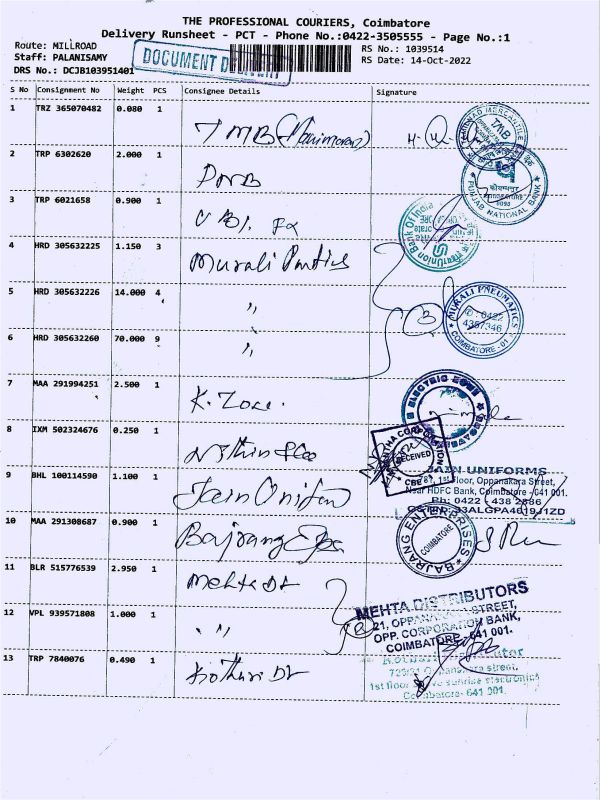 THE PROFESSIONAL COURIERS, Coimbatore
Delivery Runsheet - PCT - Phone No.:0422-3505555 - Page No.:1
Route: MILLROAD
Staff: PALANISAMY
DRS No.: DCJB103951401
DOCUMENT
RS No.: 1039514
RS Date: 14-Oct-2022
S No Consignment No Weight PCS Consignee Details Signature
1 TRZ 365070482 0.080 1 TMB TMB
2 TRP 6302620 2.000 1 PNB PUNJAB NATIONAL BANK
3 TRP 6021658 0.900 1 UBI Union Bank Of India
4 HRD 305632225 1.150 3 Murali
5 HRD 305632226 14.000 4 〃 3 MURALI PNEUMATICS 0422 4367346 COIMBATORE - 01
6 HRD 305632260 70.000 9 〃
7 MAA 291994251 2.500 1 K. Zone. ELECTRIC ZONE
8 IXM 502324676 0.250 1 Nithin CORPORATION RECEIVED CBE
9 BHL 100114590 1.100 1 Jain Uniform
JAIN UNIFORMS
1st Floor, Oppanakara Street,
Near HDFC Bank, Coimbatore - 641 001.
Ph: 0422 - 438 2886
10 MAA 291308687 0.900 1 Bajrang BAJRANG ENTERPRISES COIMBATORE
11 BLR 515776539 2.950 1 Mehta Dt
12 VPL 939571808 1.000 1 〃 2
MEHTA DISTRIBUTORS
STREET,
OPP. CORPORATION BANK,
COIMBATORE - 641 001.
13 TRP 7840076 0.490 1 Kothari Dt
street,
1st floor sunrise electronics
Coimbatore- 641 001.